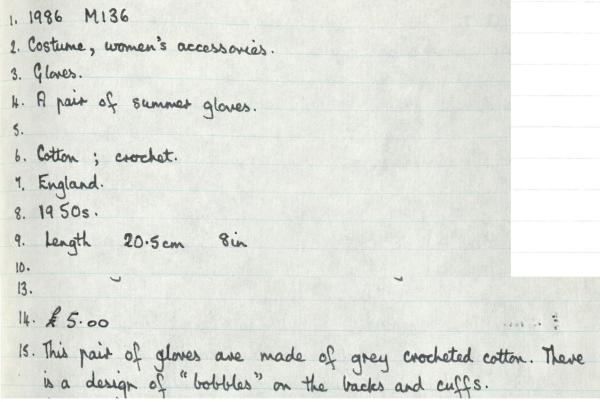 1. 1986 M136
2. Costume, women's accessories.
3. Gloves.
4. A pair of summer gloves.
5.
6. Cotton ; crochet.
7. England.
8. 1950s.
9. Length 20.5cm 8in
10.
13.
14. £5.00
15. This pair of gloves are made of grey crocheted cotton. There
is a design of "bobbles" on the backs and cuffs.